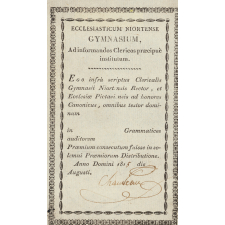 ECCLESIASTICUM NIORTENSE
GYMNASIUM,
Ad informandos Clericos præcipuè
institutum.
Ego infrà scriptus Clericalis
Gymnasii Niortensis Rector, et
Ecclesiæ Pictaviensis ad honores
Canonicus, omnibus testor dominum
in Grammatices
auditorem
Præmium consecutum fuisse in solemni
Præmiorum Distributione.
Anno Domini 18 die
Augusti,